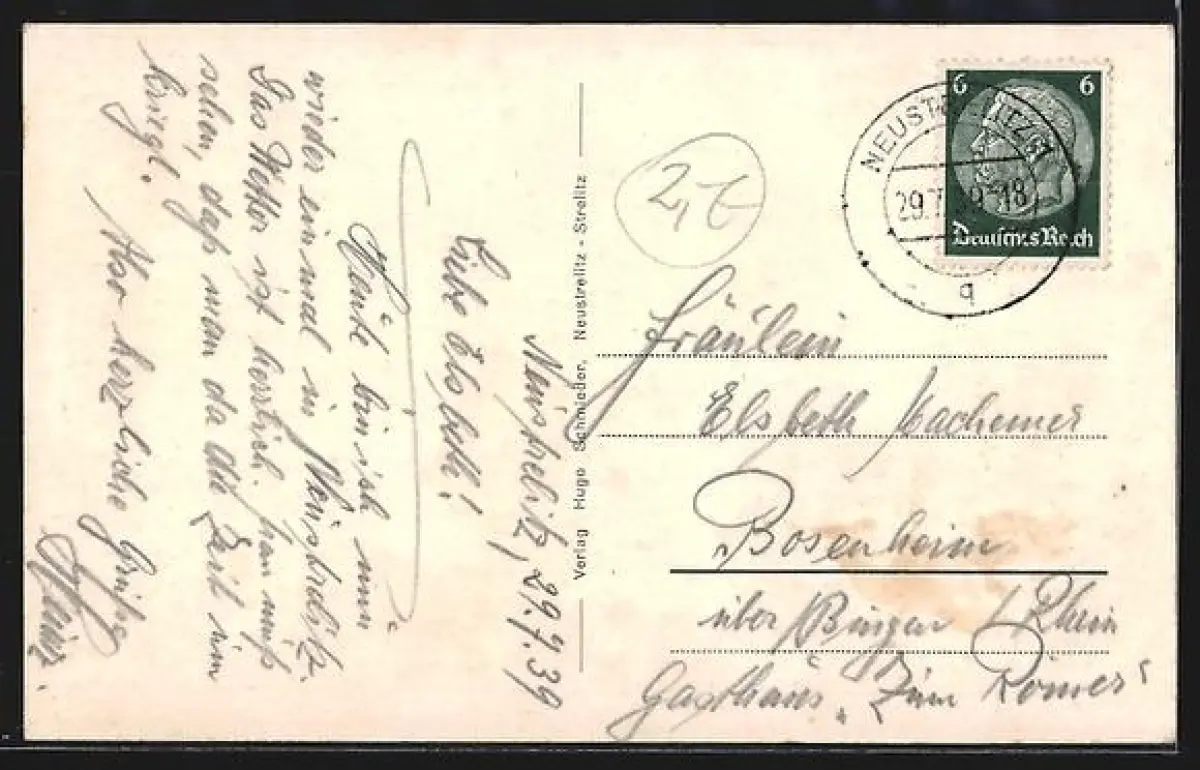 Neustrelitz, 29.7.39
Liebe Elsbeth!
Heute bin ich nun
wieder einmal in Neustrelitz.
Das Wetter ist herrlich. Man muß
sehen, daß man da die Zeit rum
kriegt.
Also herzliche Grüße
Heinz.
Verlag Hugo Schmieder, Neustrelitz - Strelitz
2,-
6 6
Deutsches Reich
NEUSTRELITZ
29.7. 18
q
Fräulein
Elsbeth Machemer
Bosenheim
über Bingen / Rhein
Gasthaus „Zum Römer"